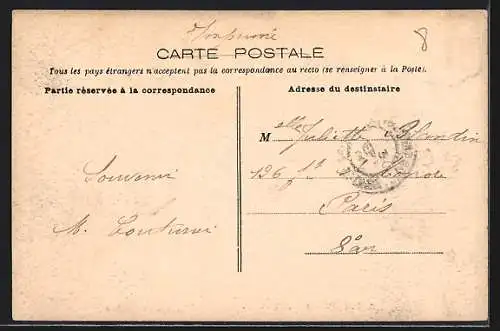 8
CARTE POSTALE
Tous les pays étrangers n'acceptent pas la correspondance au recto (se renseigner à la Poste).
Partie réservée à la correspondance
Adresse du destinataire
Melle Juliette Blondin
126 fg
Souvenir
Paris
M.